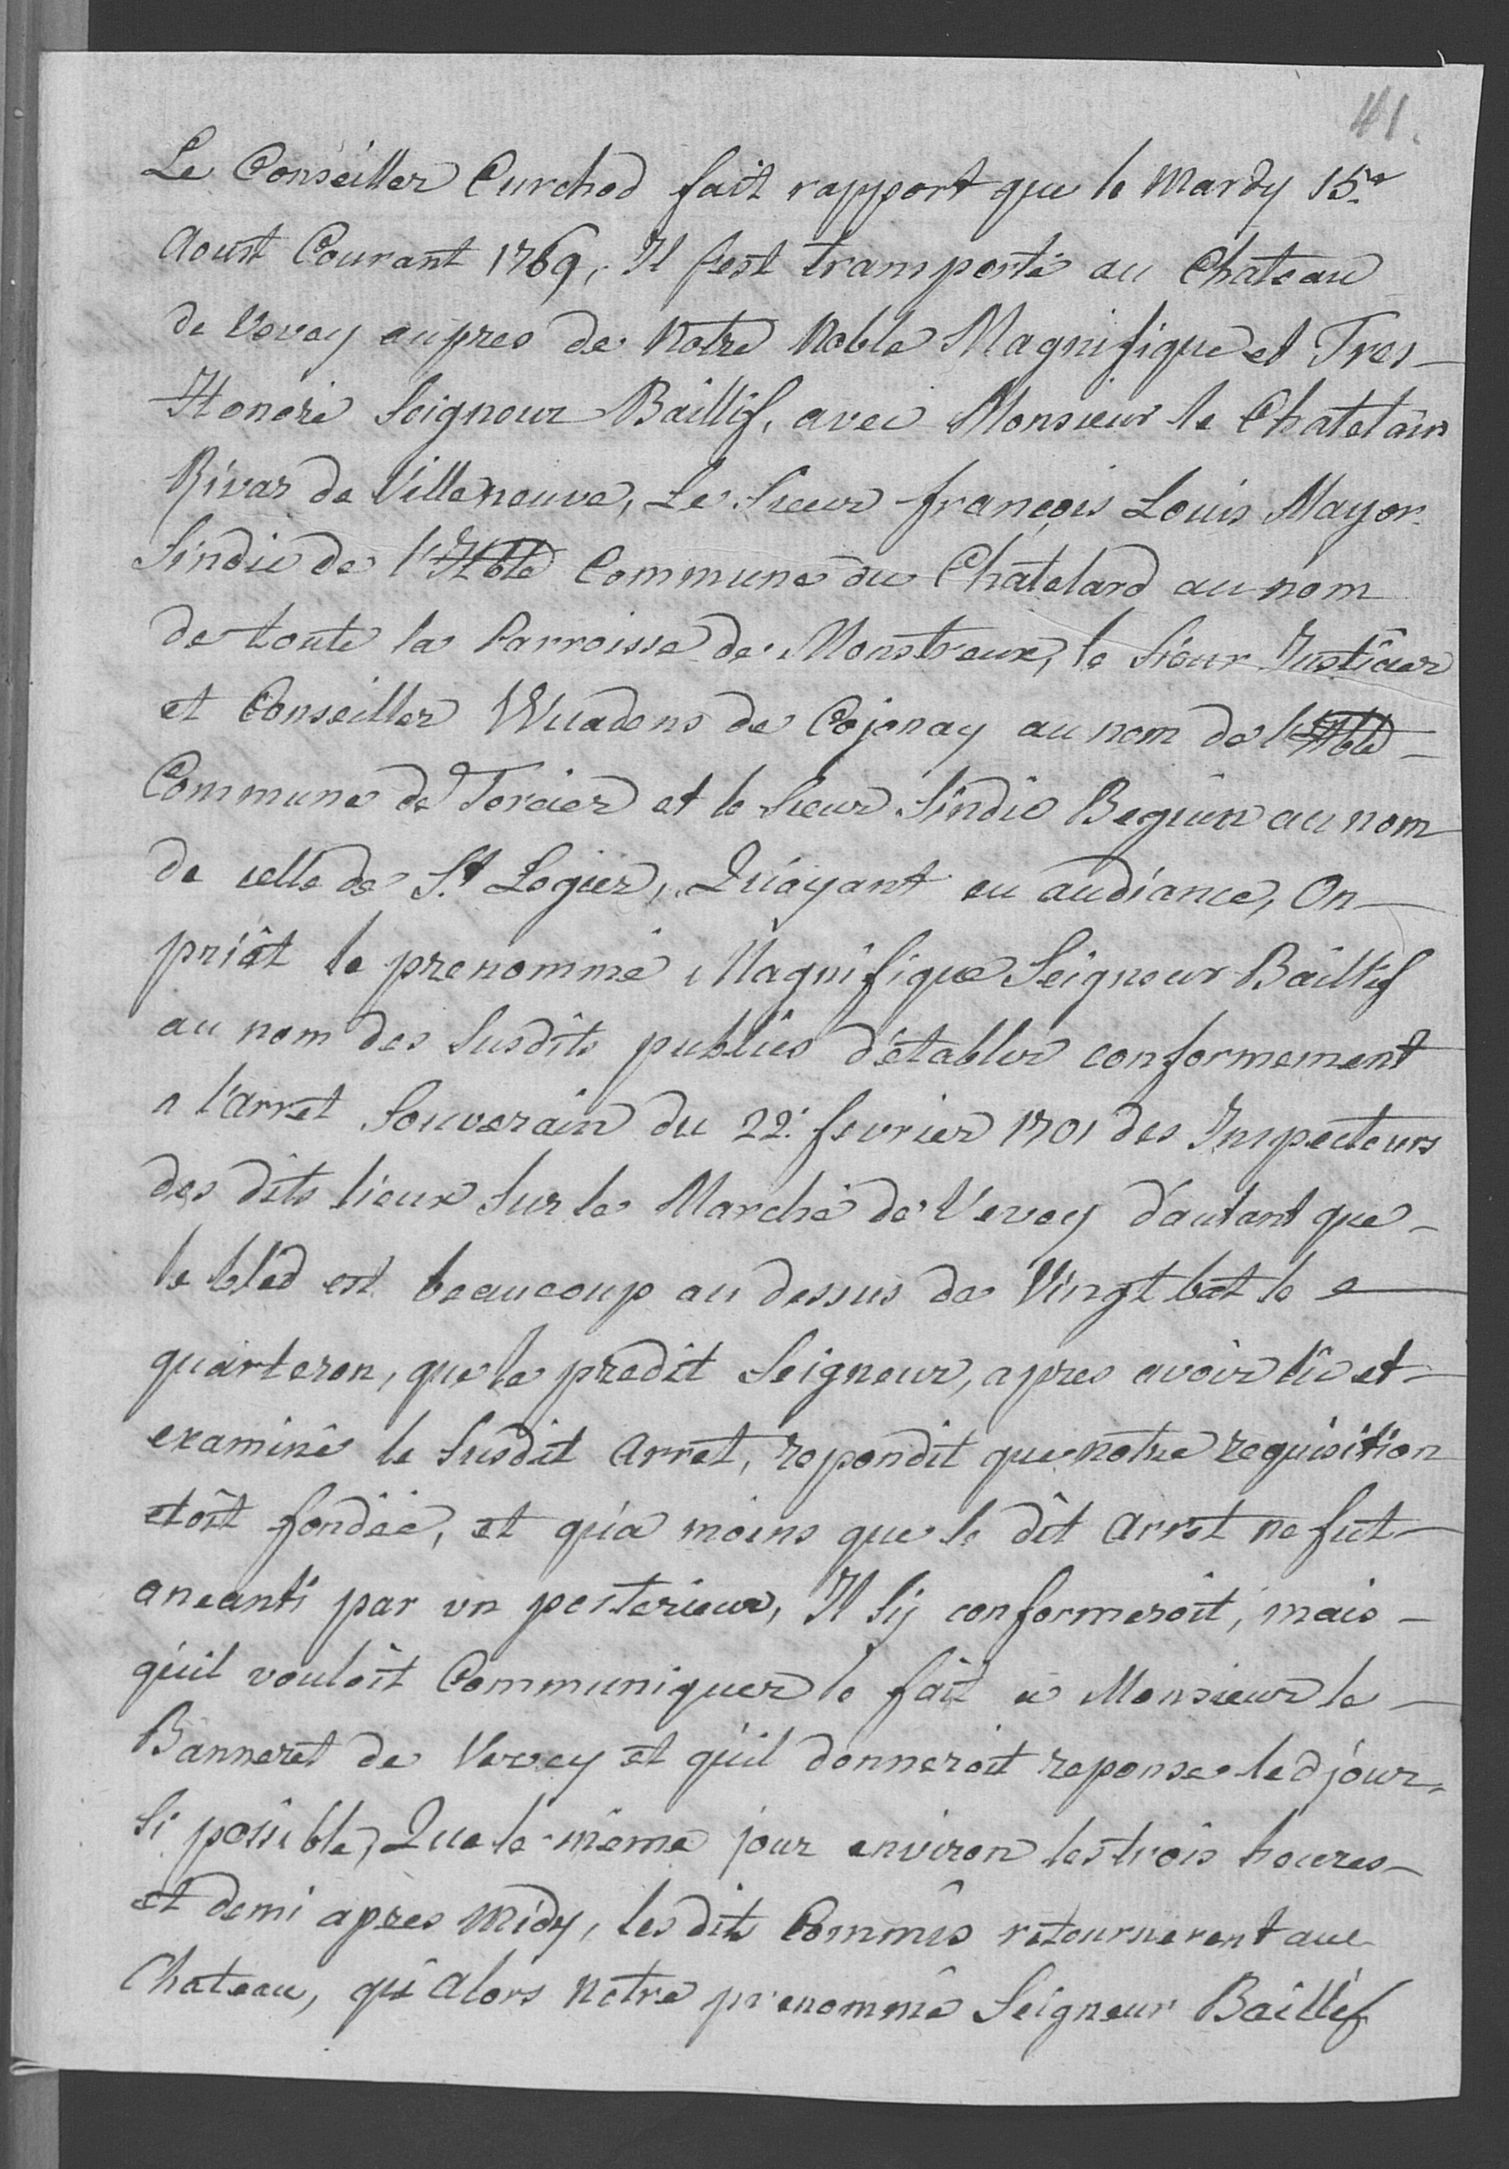 41.
Le Conseiller Curchod fait rapport que le Mardy 15e.
Aoust Courant 1769, Il s'est transporté au Chateau
de Vevey aupres de Notre Noble Magnifique et Tres-
Honoré Seigneur Baillif, avec Monsieur le Chatelain
Rivaz de Villeneuve, Le Sieur françois Louis Mayor
Sindic de l'Hble Commune du Châtelard au nom
de toute la Parroisse de Monstreux, le Sieur Justicier
et Conseiller Wuadens de Cojonay au nom de l'Hble
Commune de Corcier et le Sieur Sindic Beguin au nom
de celle de St. Legier, Qu'ayant eu audiance, On
priât le prenommé Magnifique Seigneur Baillif
au nom des Susdits publics d'établir conformement
a l'arret Souverain du 22e. fevrier 1701 des Inspecteurs
des dits lieux Sur le Marché de Vevey d'autant que
le bled est beaucoup au dessus de Vingt bat le
quarteron, que le predit Seigneur, apres avoir lû et
examiné le Susdit Arret, repondit que notre requisition
etoit fondée, et qu'a moins que le dit Arret ne fut
aneanti par un posterieur, Il s'y conformeroit, mais
qu'il vouloit Communiquer le fait a Monsieur le
Banneret de Vevey et qu'il donneroit reponse led jour,
Si possible, Que le même jour environ les trois heures
et demi apres Midy, les dits Commis retournerent au
Chateau, qu'Alors Notre prenommé Seigneur Baillif